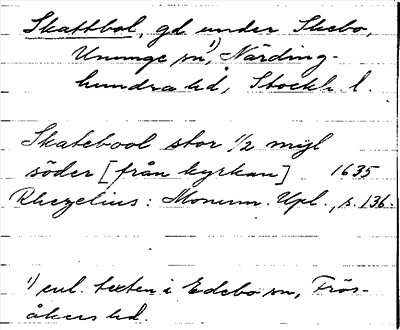 Skattbol, gd under Skebo,
Ununge sn¹⁾, Närding-
hundra hd, Stockh. l.
Skatebool stor 1/2 mijl
söder [från kyrkan] 1635
Rhezelius: Monum. Upl., s. 136.
¹⁾ enl. texten i Edebo sn, Frös-
åkers hd.